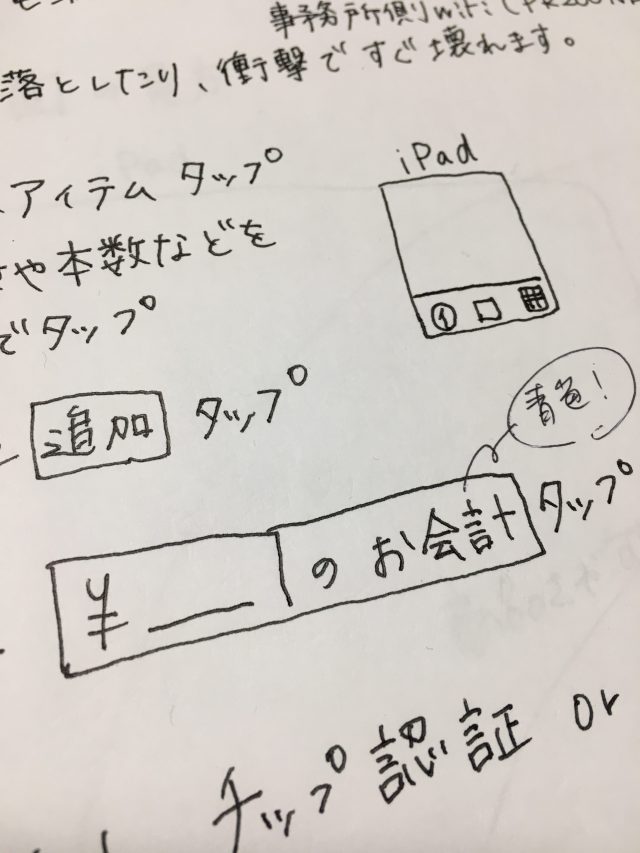 事務所側 wifi
落としたり、衝撃ですぐ壊れます。
iPad
アイテム タップ
や本数などを
でタップ
①
追加 タップ
青色!
¥ のお会計 タップ
チップ認証 or